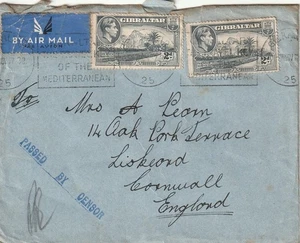 BY AIR MAIL
PAR AVION
GIBRALTAR
2d
GIBRALTAR
2d
OF THE
MEDITERRANEAN
25
25
To,
Mrs A Pearn
14 Oak Park Terrace
Liskeard
Cornwall
England
PASSED BY CENSOR